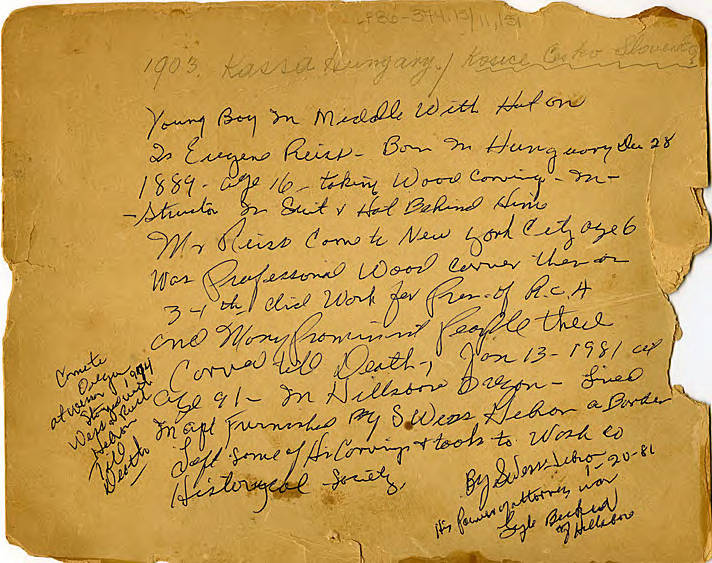 1903. Kassa Hungary. / Kosice Cesko Slovensko
Young Boy In Middle With Hat on
Is Eugene Reisz - Born In Hunguary Dec 28
1889 - age 16 - taking Wood Carving - In-
-structor In Suit & Hat Behind Him
Mr Reisz Came to New York City age 6
Was Professional Wood Carver then on
3-4th did Work for Pres. of R.C.A
and Many Prominent People there
Carved till Death, Jan 13 - 1981 at
age 91 - In Hillsboro Oregon - Lived
In apt Furnished By S Weiss Hebron a Border
Left Some of His Carvings & tools to Wash Co
Historical Society.
Came to
Oregon
1974
Stayed with
Hebron
Till
Death
By S Weiss Hebron
1-20-81
His Power of attorney was
Lyle
of Hillsboro